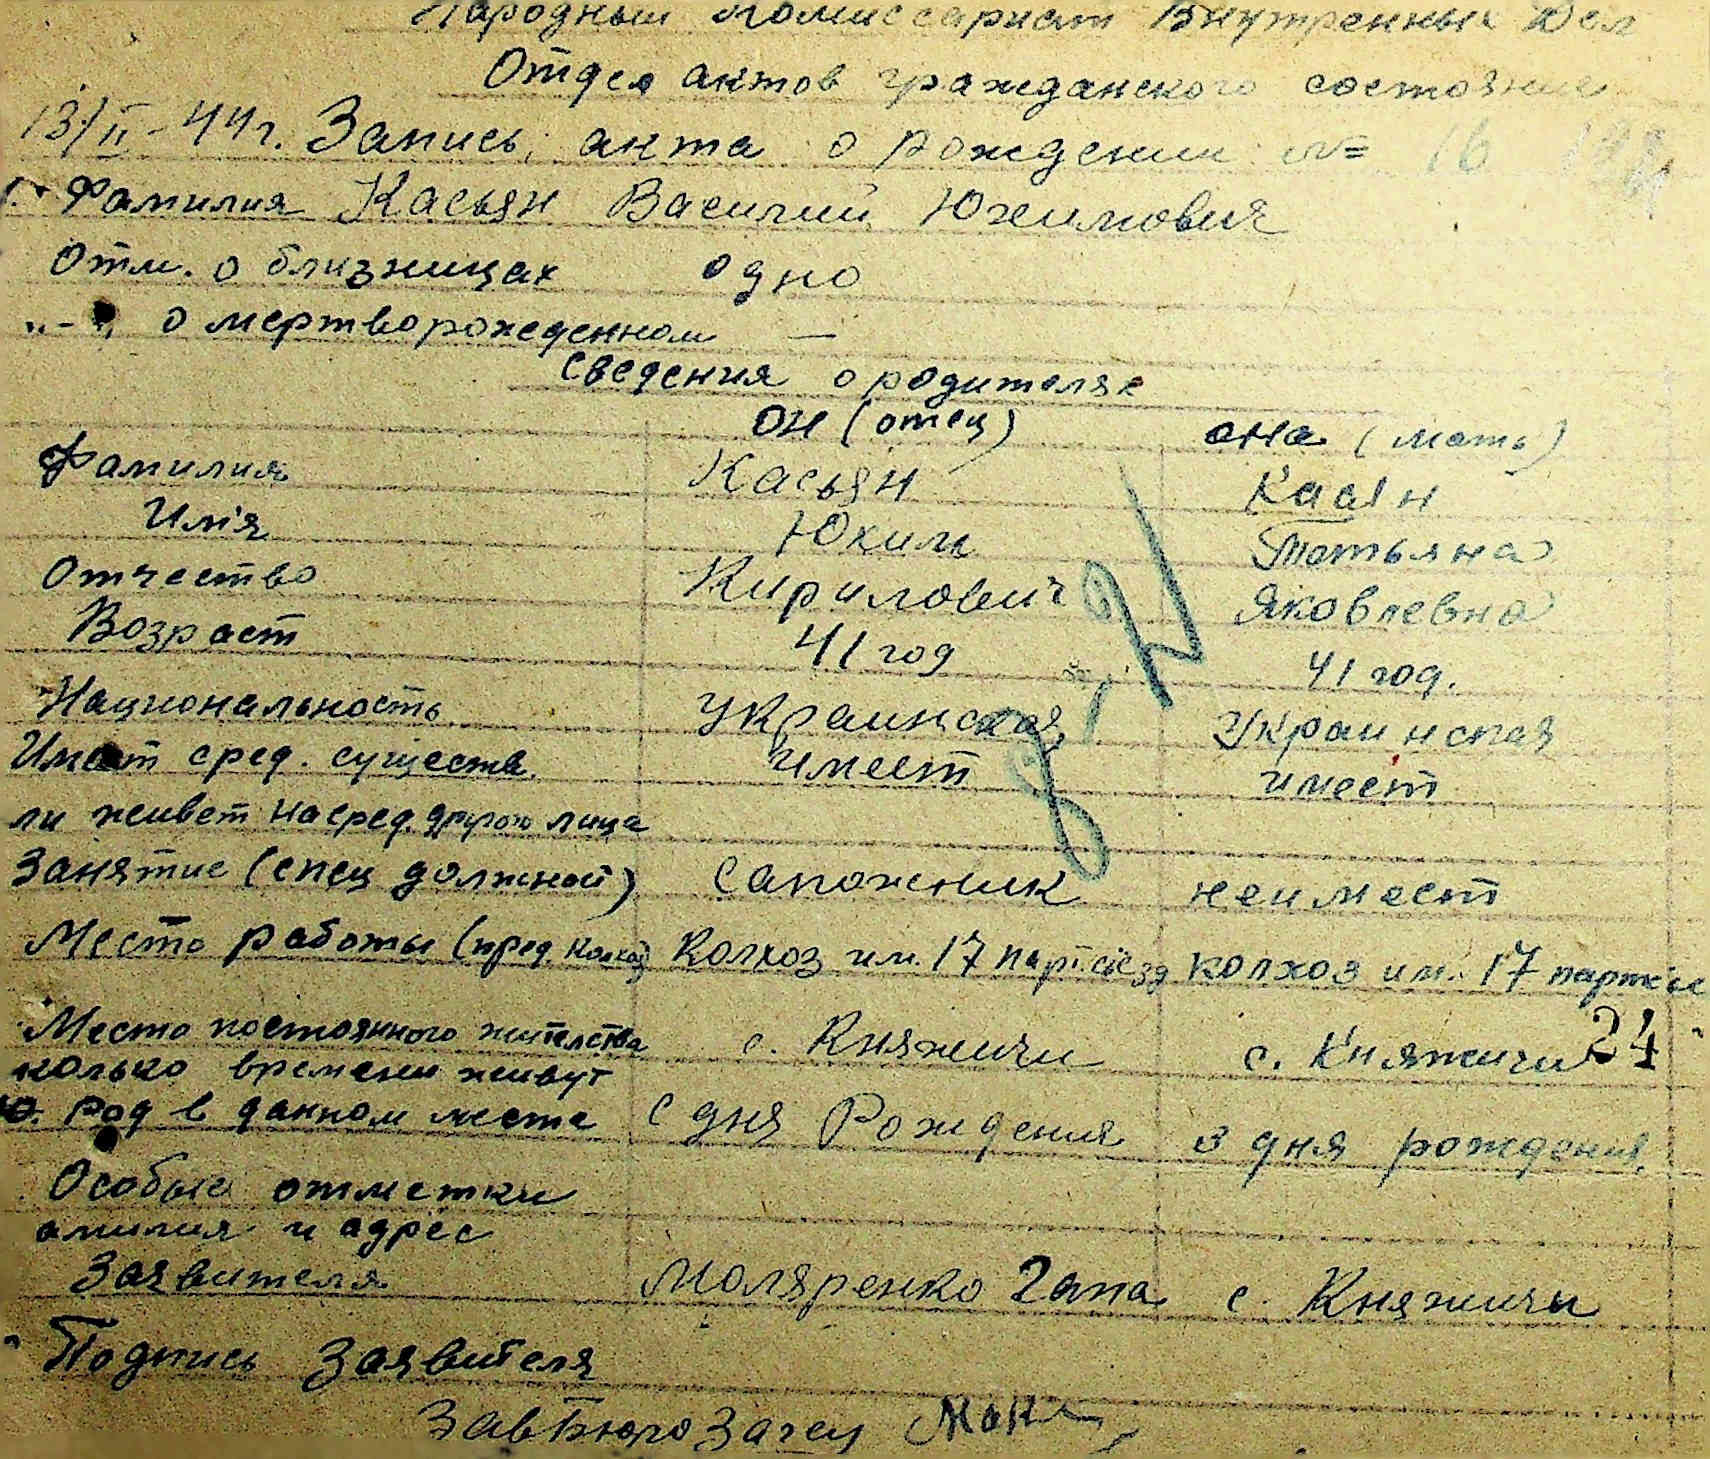 Народный Комиссариат Внутренных Дел
Отдел актов гражданского состояние
13/II-44г. Запись акта о рождении №= 16
1. Фамилия Касьян Василий Юхимович
Отм. о близницах одно
"-" о мертворожеденном —
Сведения о родителях
он (отец) она (мать)
Фамилия Касьян Касян
Им'я Юхим Татьяна
Отчество Кирилович Яковлевна
Возраст 41 год 41 год.
Национальность Украинская Украинская
Имеют сред. существ. имеет имеет
ли живет на сред. другого лица
Занятие (спец должной) Сапожник неимеет
Место работы (пред. колхоз) Колхоз им. 17 партсьезд колхоз им. 17 партсье
Место постоянного жителства с. Княжичи с. Княжичи 24
колько времени живут
10. Род в данном месте С дня Рождения з дня рождения.
Особые отметки
амилия и адрес
Заявителя Моляренко Гапа с. Княжичы
Подпись Заявителя
ЗавБюро Загсу